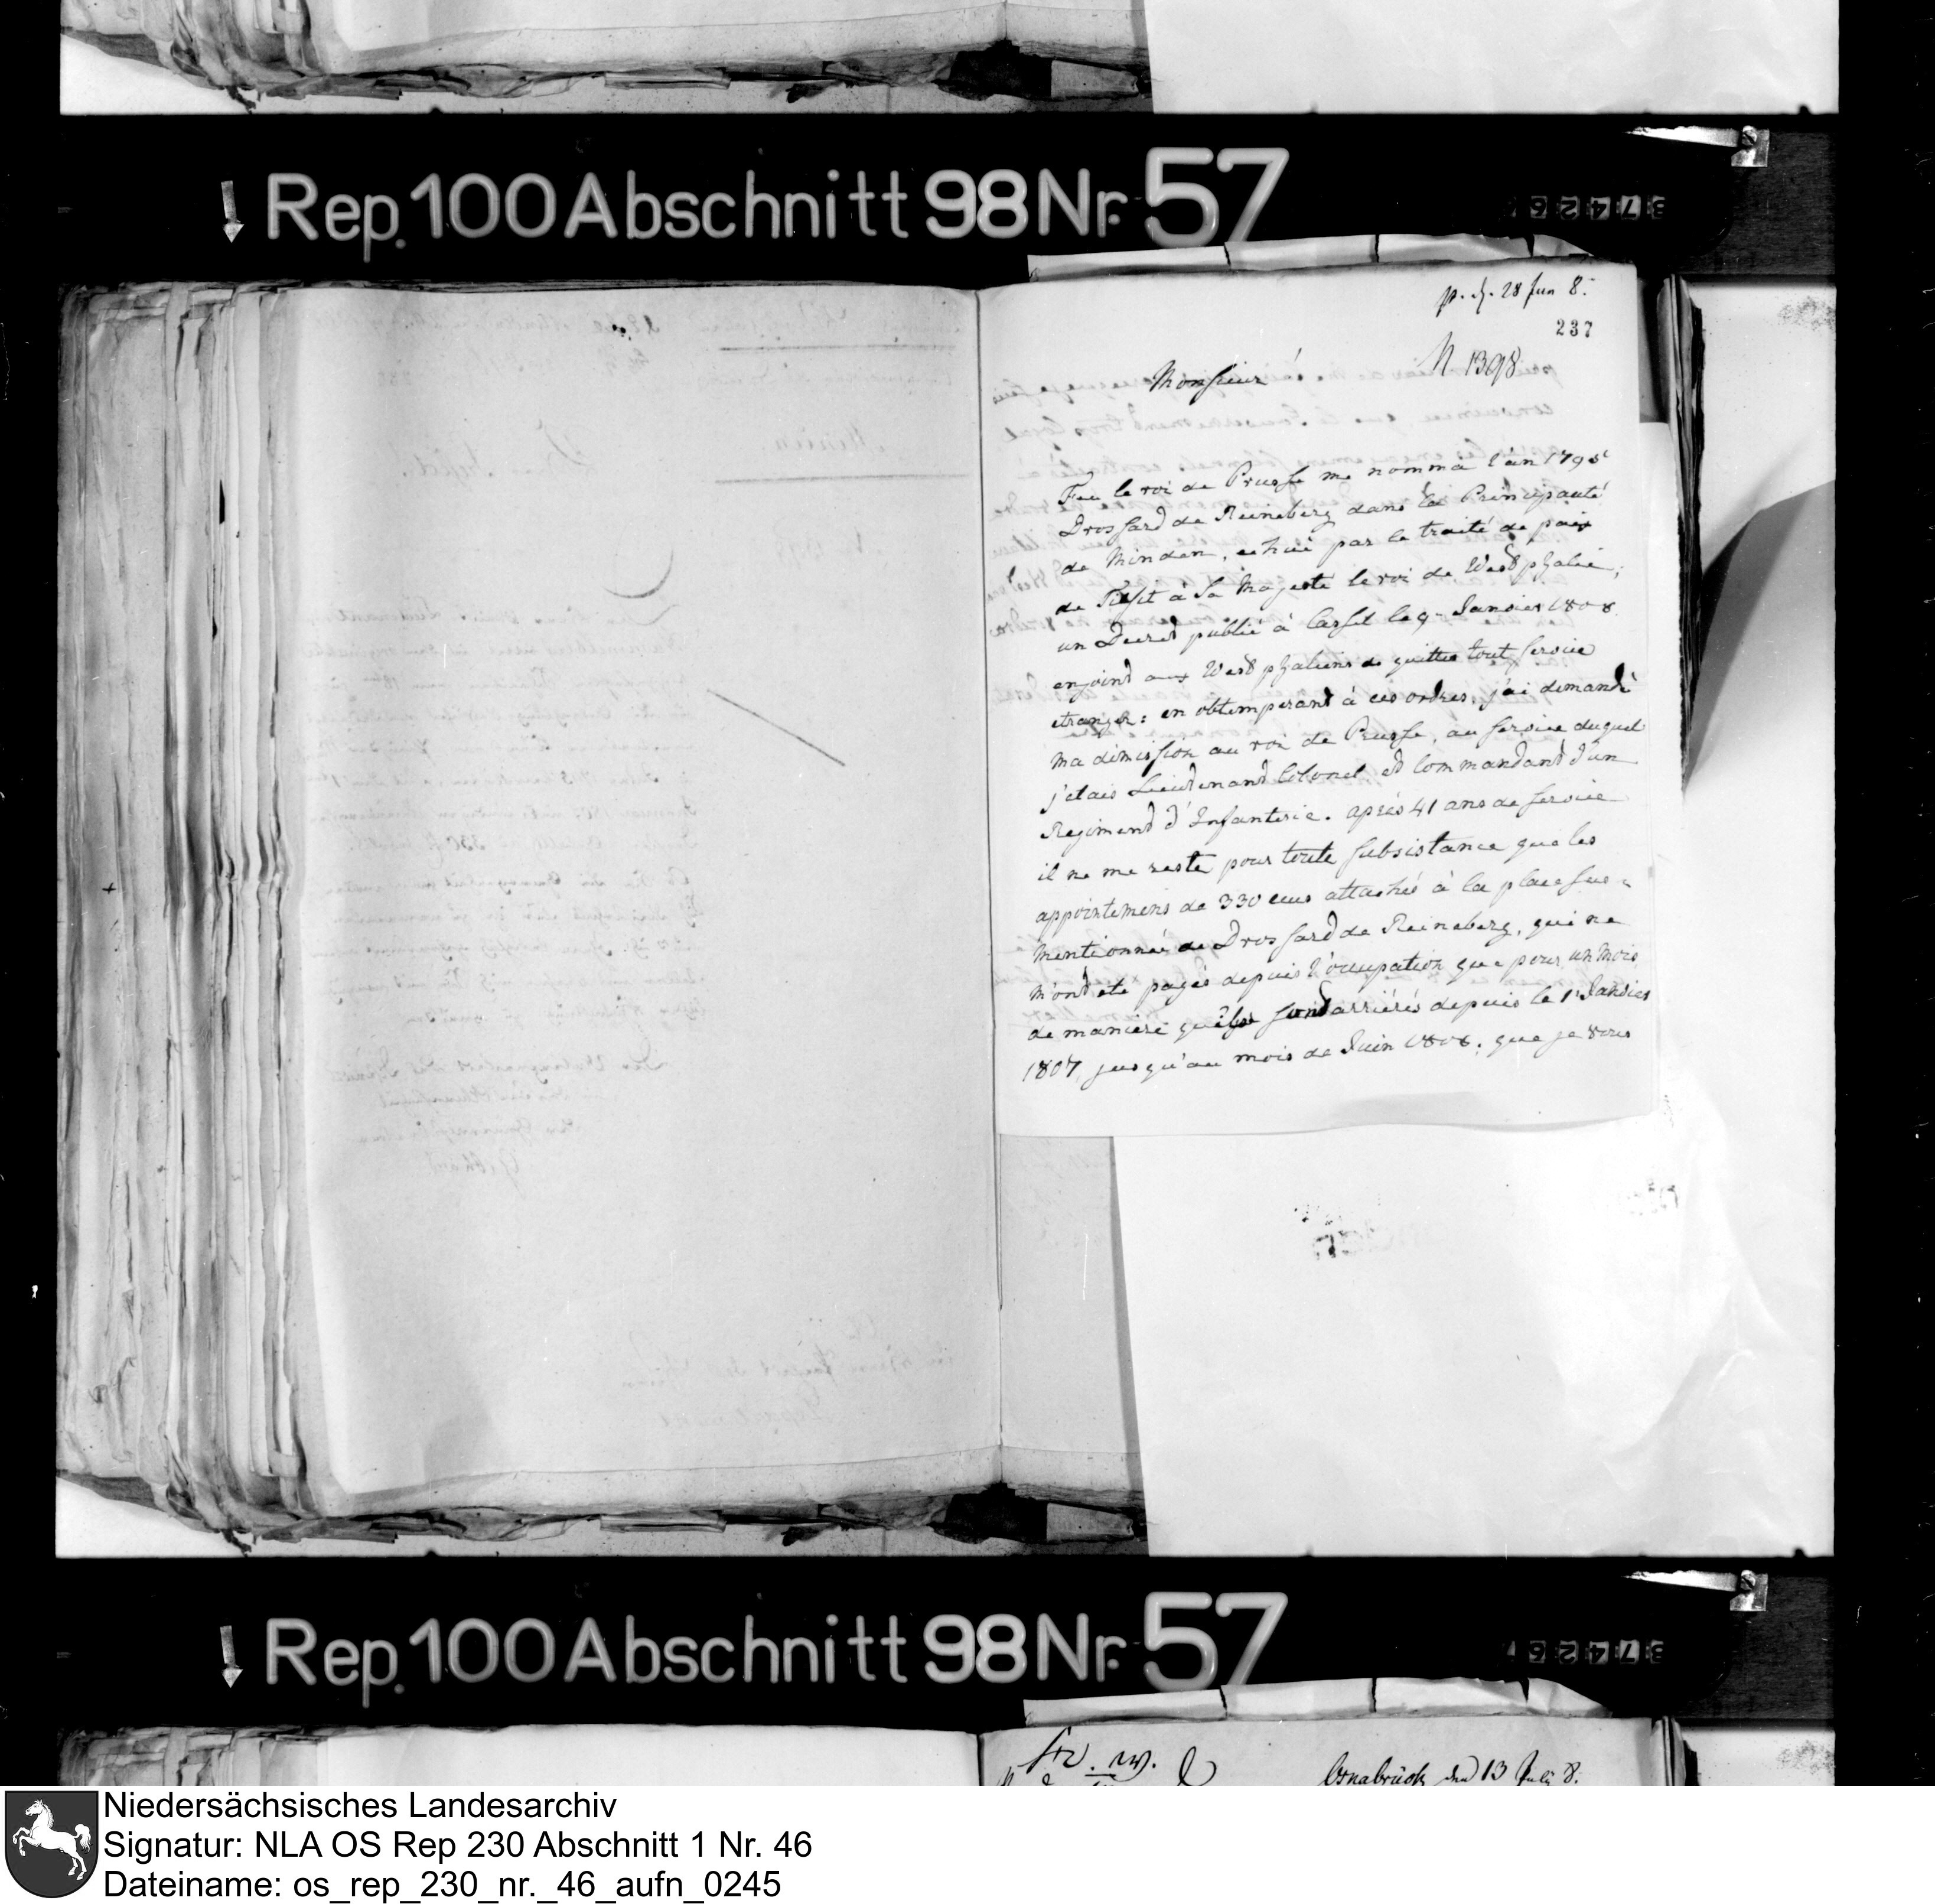 Rep. 100 Abschnitt 98 Nr. 57
3 7 4 2 6
p. d. 28 Jun 8.
237
N 1398
Monsieur
Feu le roi de Prusse me nomma l'an 1795
Drossard de Reineberg dans la Principauté
de Minden, echuë par le traité de paix
de Tilsit a Sa Majesté le roi de Westphalie;
un Decret publié à Cassel le 9 Janvier 1808
enjoint aux Westphaliens de quitter tout service
etranger: en obtemperant à ces ordres, j'ai demandé
ma dimission au roi de Prusse, au service duquel
j'etais Lieutenant Colonel et Commandant d'un
Regiment d'Infanterie. après 41 ans de service
il ne me reste pour toute subsistance que les
appointemens de 330 ecus attachés à la place sus-
mentionnée de Drossard de Reineberg, qui ne
m'ont ete payés depuis l'occupation que pour un mois
de maniere qu'ils sont arriérés depuis le 1r Janvier
1807 jusqu'au mois de Juin 1808; que je vous
Rep. 100 Abschnitt 98 Nr. 57
3 7 4 2 6
Osnabrück den 13 July 8.
Niedersächsisches Landesarchiv
Signatur: NLA OS Rep 230 Abschnitt 1 Nr. 46
Dateiname: os_rep_230_nr._46_aufn_0245